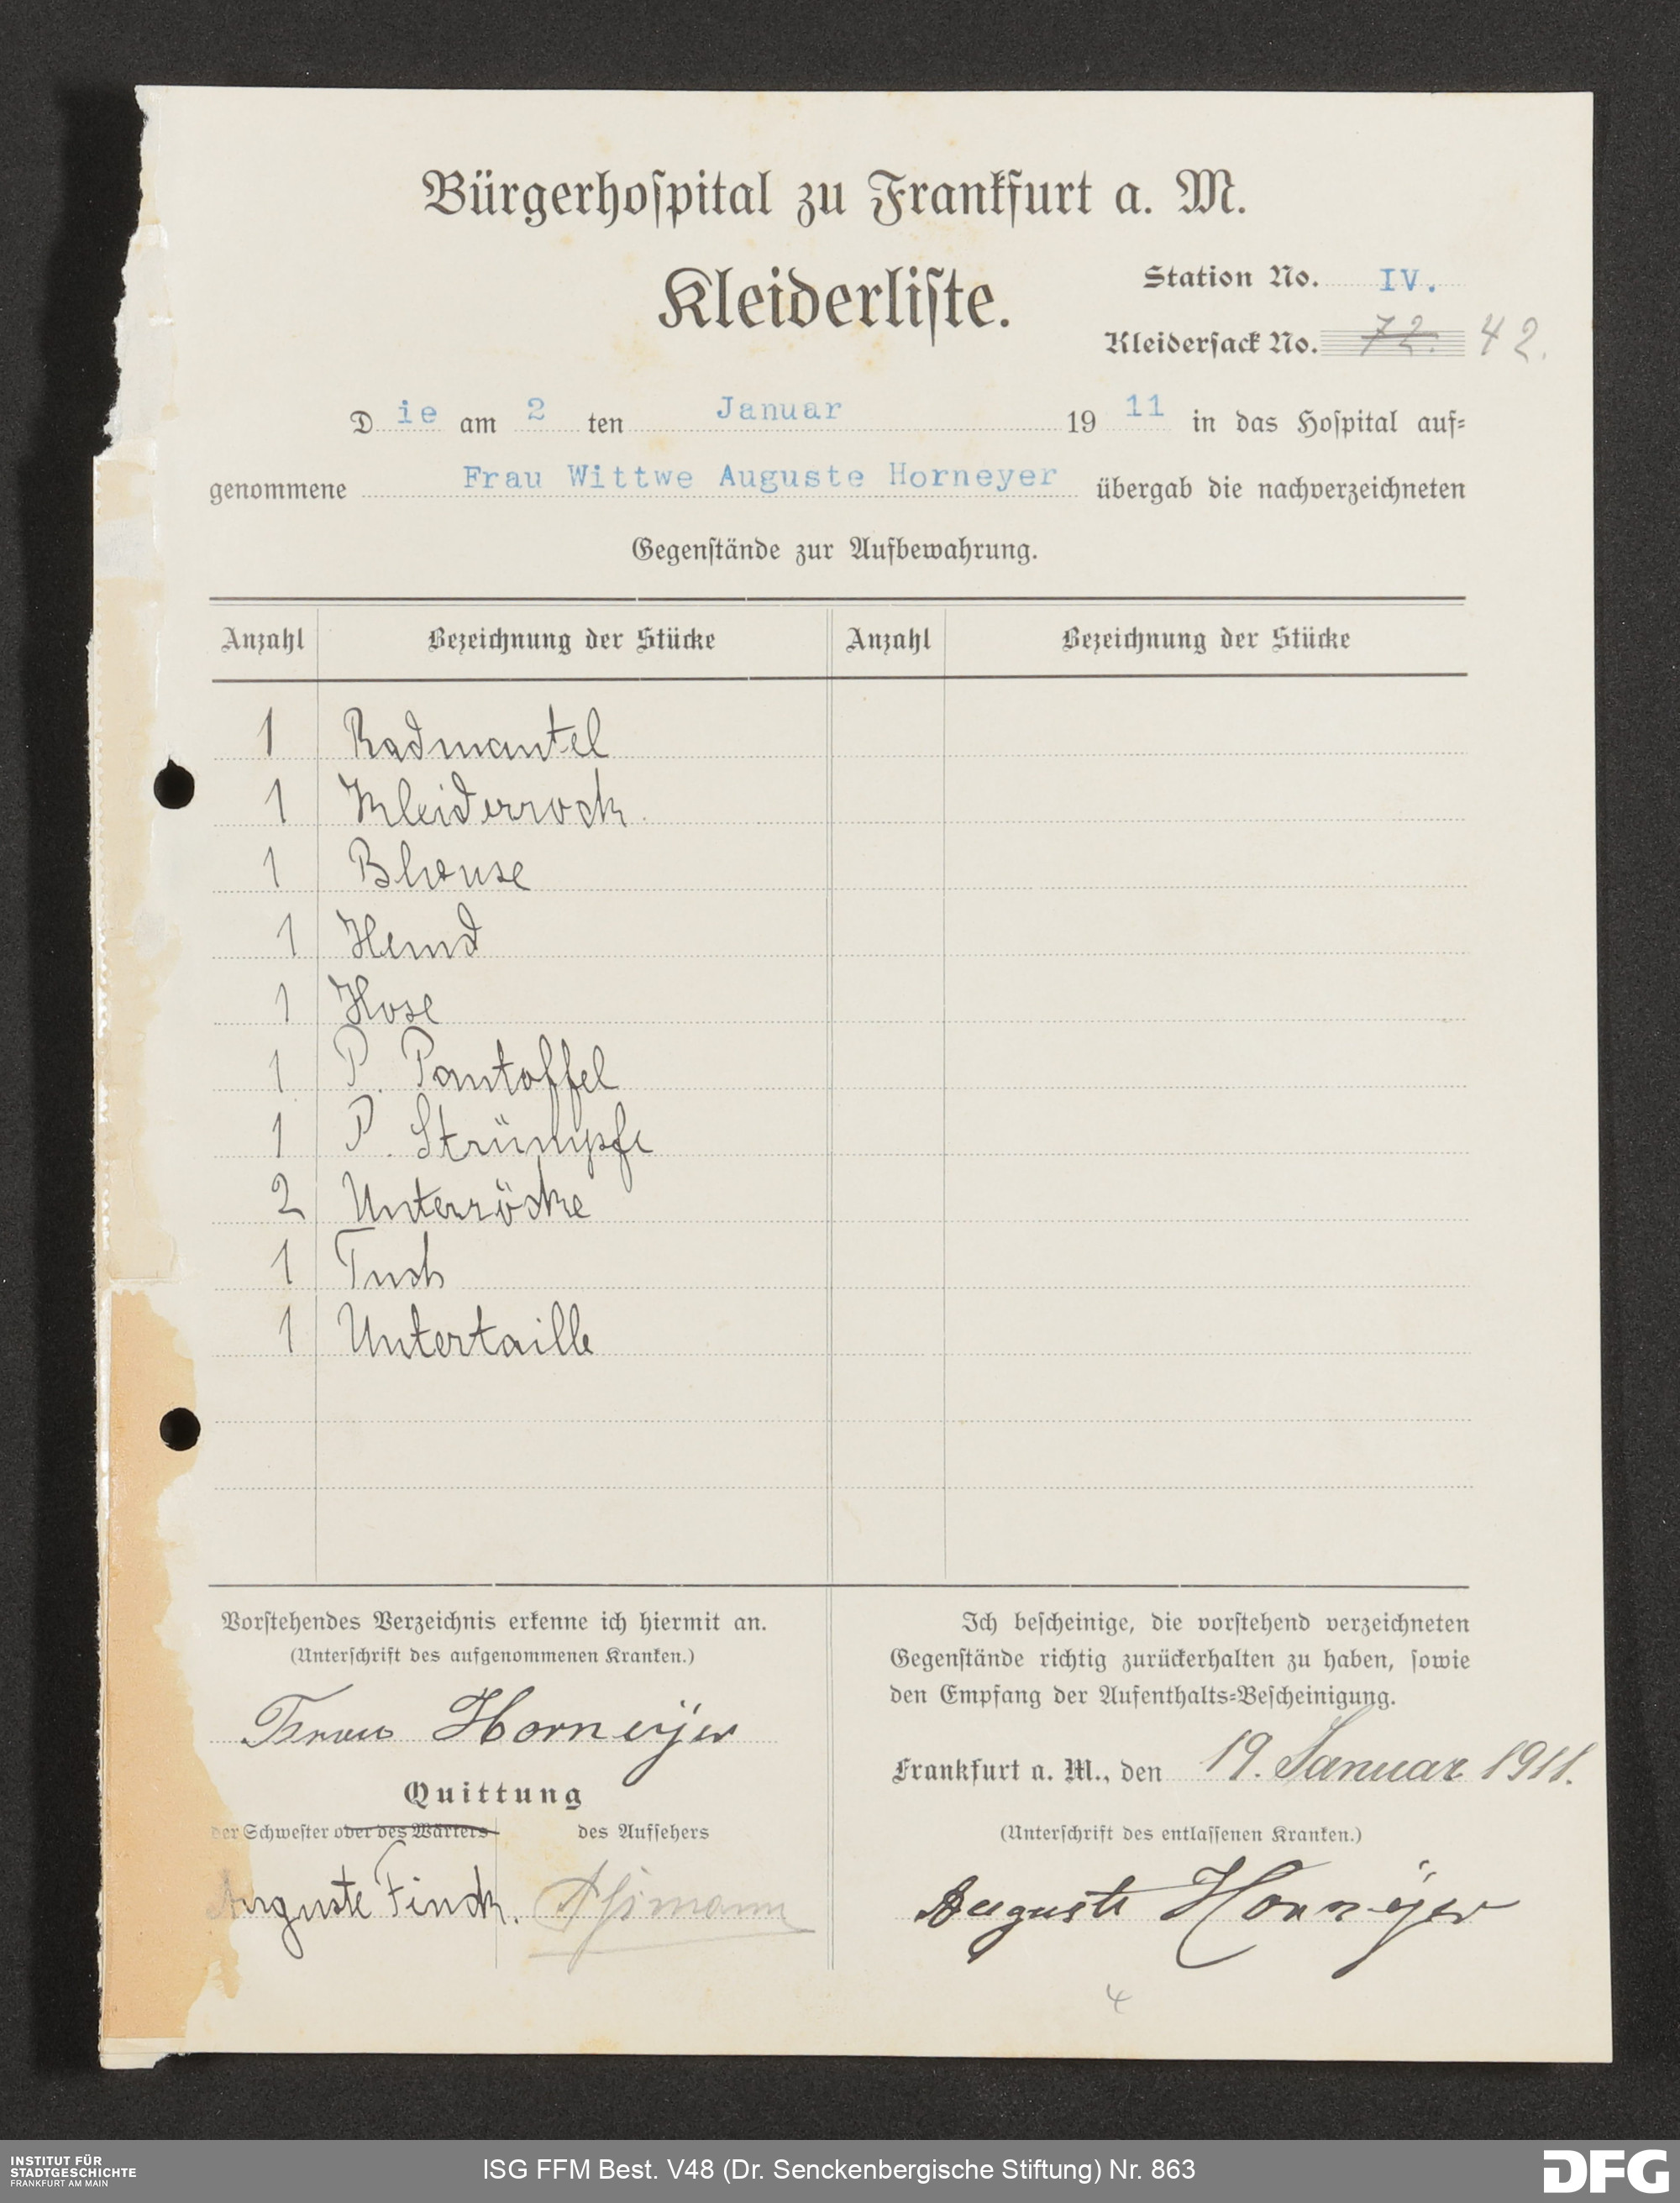 Bürgerhospital zu Frankfurt a. M.
Kleiderliste.
Station No. IV.
Kleidersack No. 72. 42.
Die am 2 ten Januar 1911 in das Hospital auf-
genommene Frau Wittwe Auguste Horneyer übergab die nachverzeichneten
Gegenstände zur Aufbewahrung.
Anzahl Bezeichnung der Stücke Anzahl Bezeichnung der Stücke
1 Radmantel
1 Kleiderrock.
1 Blouse
1 Hemd
1 Hose
1 P. Pantoffel
1 P. Strümpfe
2 Unterröcke
1 Tuch
1 Untertaille
Vorstehendes Verzeichnis erkenne ich hiermit an.
(Unterschrift des aufgenommenen Kranken.)
Frau Horneijer
Quittung
der Schwester oder des Wärters des Aufsehers
Auguste Finck.
Ich bescheinige, die vorstehend verzeichneten
Gegenstände richtig zurückerhalten zu haben, sowie
den Empfang der Aufenthalts-Bescheinigung.
Frankfurt a. M., den 19. Januar 1911.
(Unterschrift des entlassenen Kranken.)
Auguste Horneijer
4
INSTITUT FÜR
STADTGESCHICHTE
FRANKFURT AM MAIN
ISG FFM Best. V48 (Dr. Senckenbergische Stiftung) Nr. 863
DFG